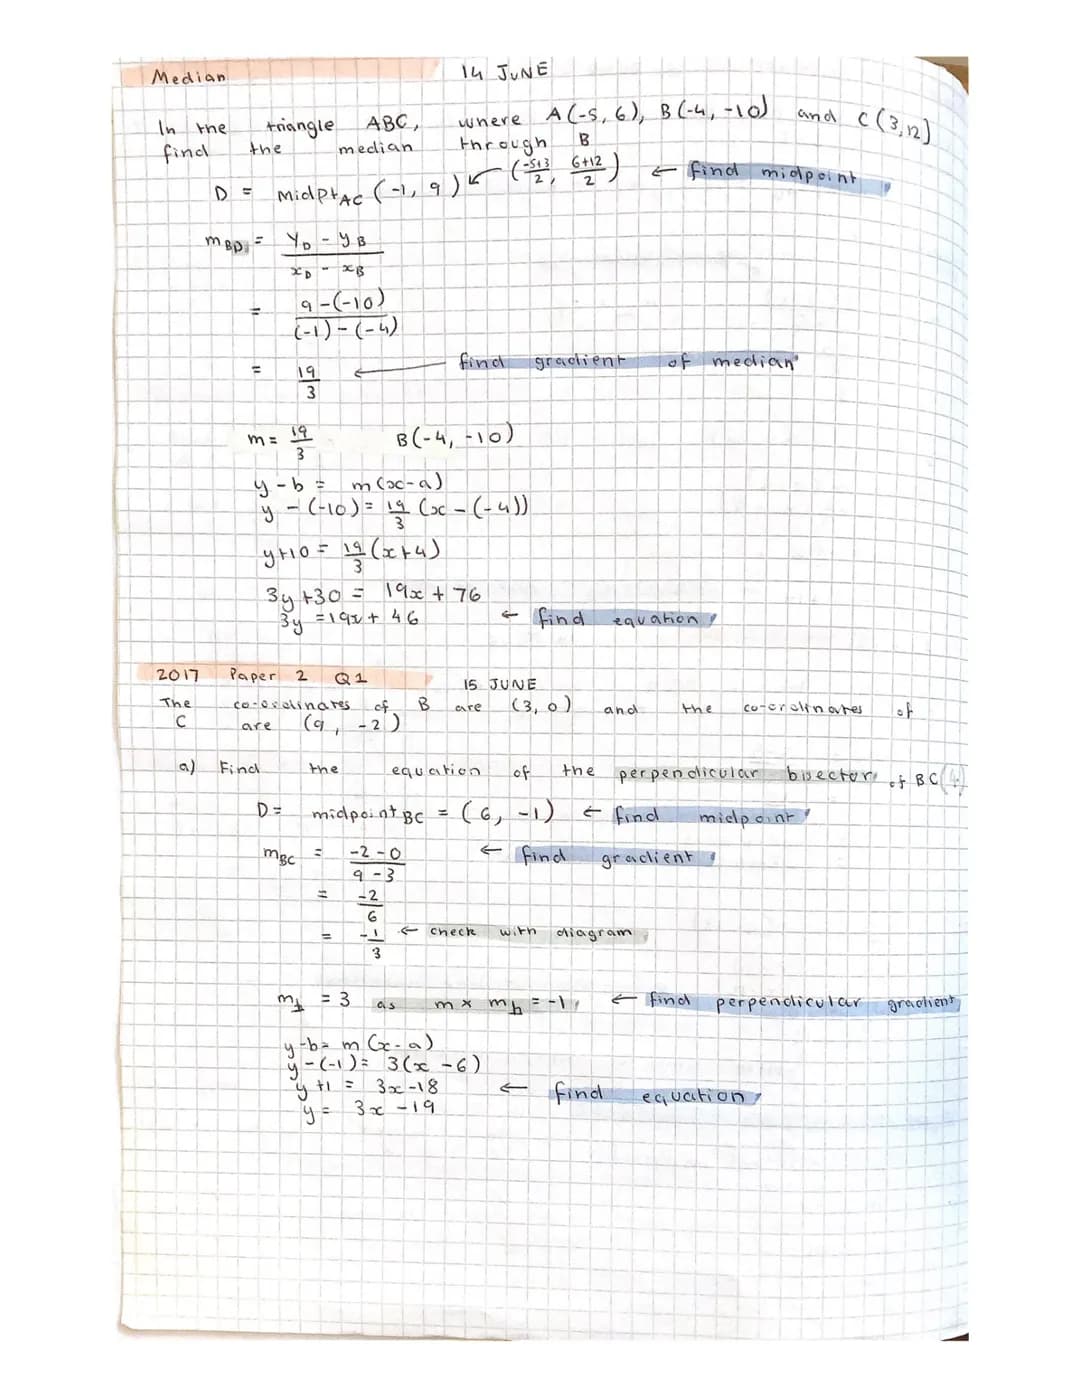 Median 14 JUNE
In the triangle ABC, where A(-5, 6), B(-4, -10) and C(3,12)
find the median through B
D = midpt AC (-1, 9) ↙ (-5+3/2, 6+12/2) ← find midpoint
mBD = yD - yB / xD - xB
= 9-(-10) / (-1)-(-4)
= 19/3 ← find gradient of median
m = 19/3 B(-4, -10)
y - b = m(x-a)
y - (-10) = 19/3 (x - (-4))
y+10 = 19/3 (x+4)
3y +30 = 19x + 76
3y = 19x + 46 ← find equation
2017 Paper 2 Q1 15 JUNE
The co-ordinates of B are (3, 0) and the co-ordinates of
C are (9, -2)
a) Find the equation of the perpendicular bisector of BC (4)
D = midpoint BC = (6, -1) ← find midpoint
mBC = -2 - 0 / 9 - 3 ← find gradient
= -2/6
= -1/3 ← check with diagram
m⊥ = 3 as m × m⊥ = -1 ← find perpendicular gradient
y-b = m(x-a)
y-(-1) = 3(x - 6)
y +1 = 3x -18 ← find equation
y = 3x -19